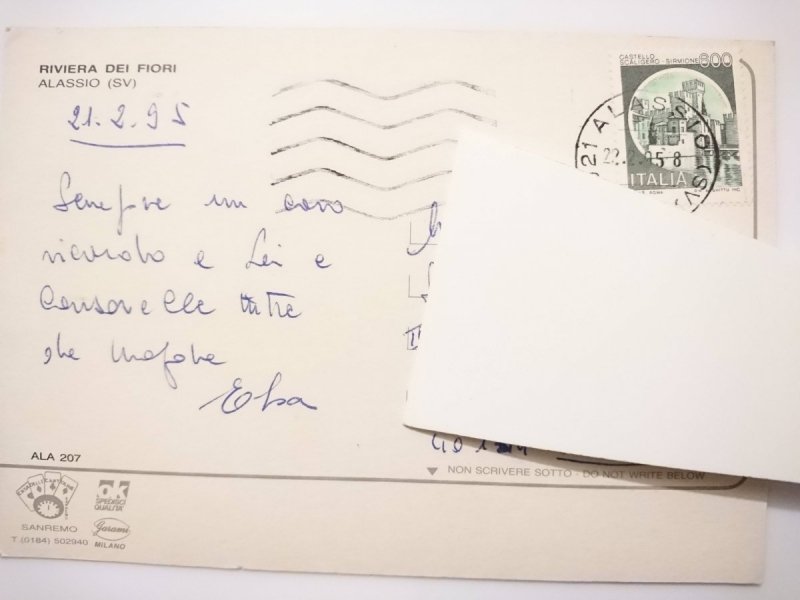 RIVIERA DEI FIORI
ALASSIO (SV)
21.2.95
Sempre un caro
ricordo a Lei e
Consorelle tutte
Elsa
CASTELLO
SCALIGERO - SIRMIONE
600
ITALIA
ALASSIO (SV)
22.2.95 8
ALA 207
SANREMO
T (0184) 502940
OK
SPEDISCI
QUALITA'
Garami
MILANO
▼ NON SCRIVERE SOTTO - DO NOT WRITE BELOW